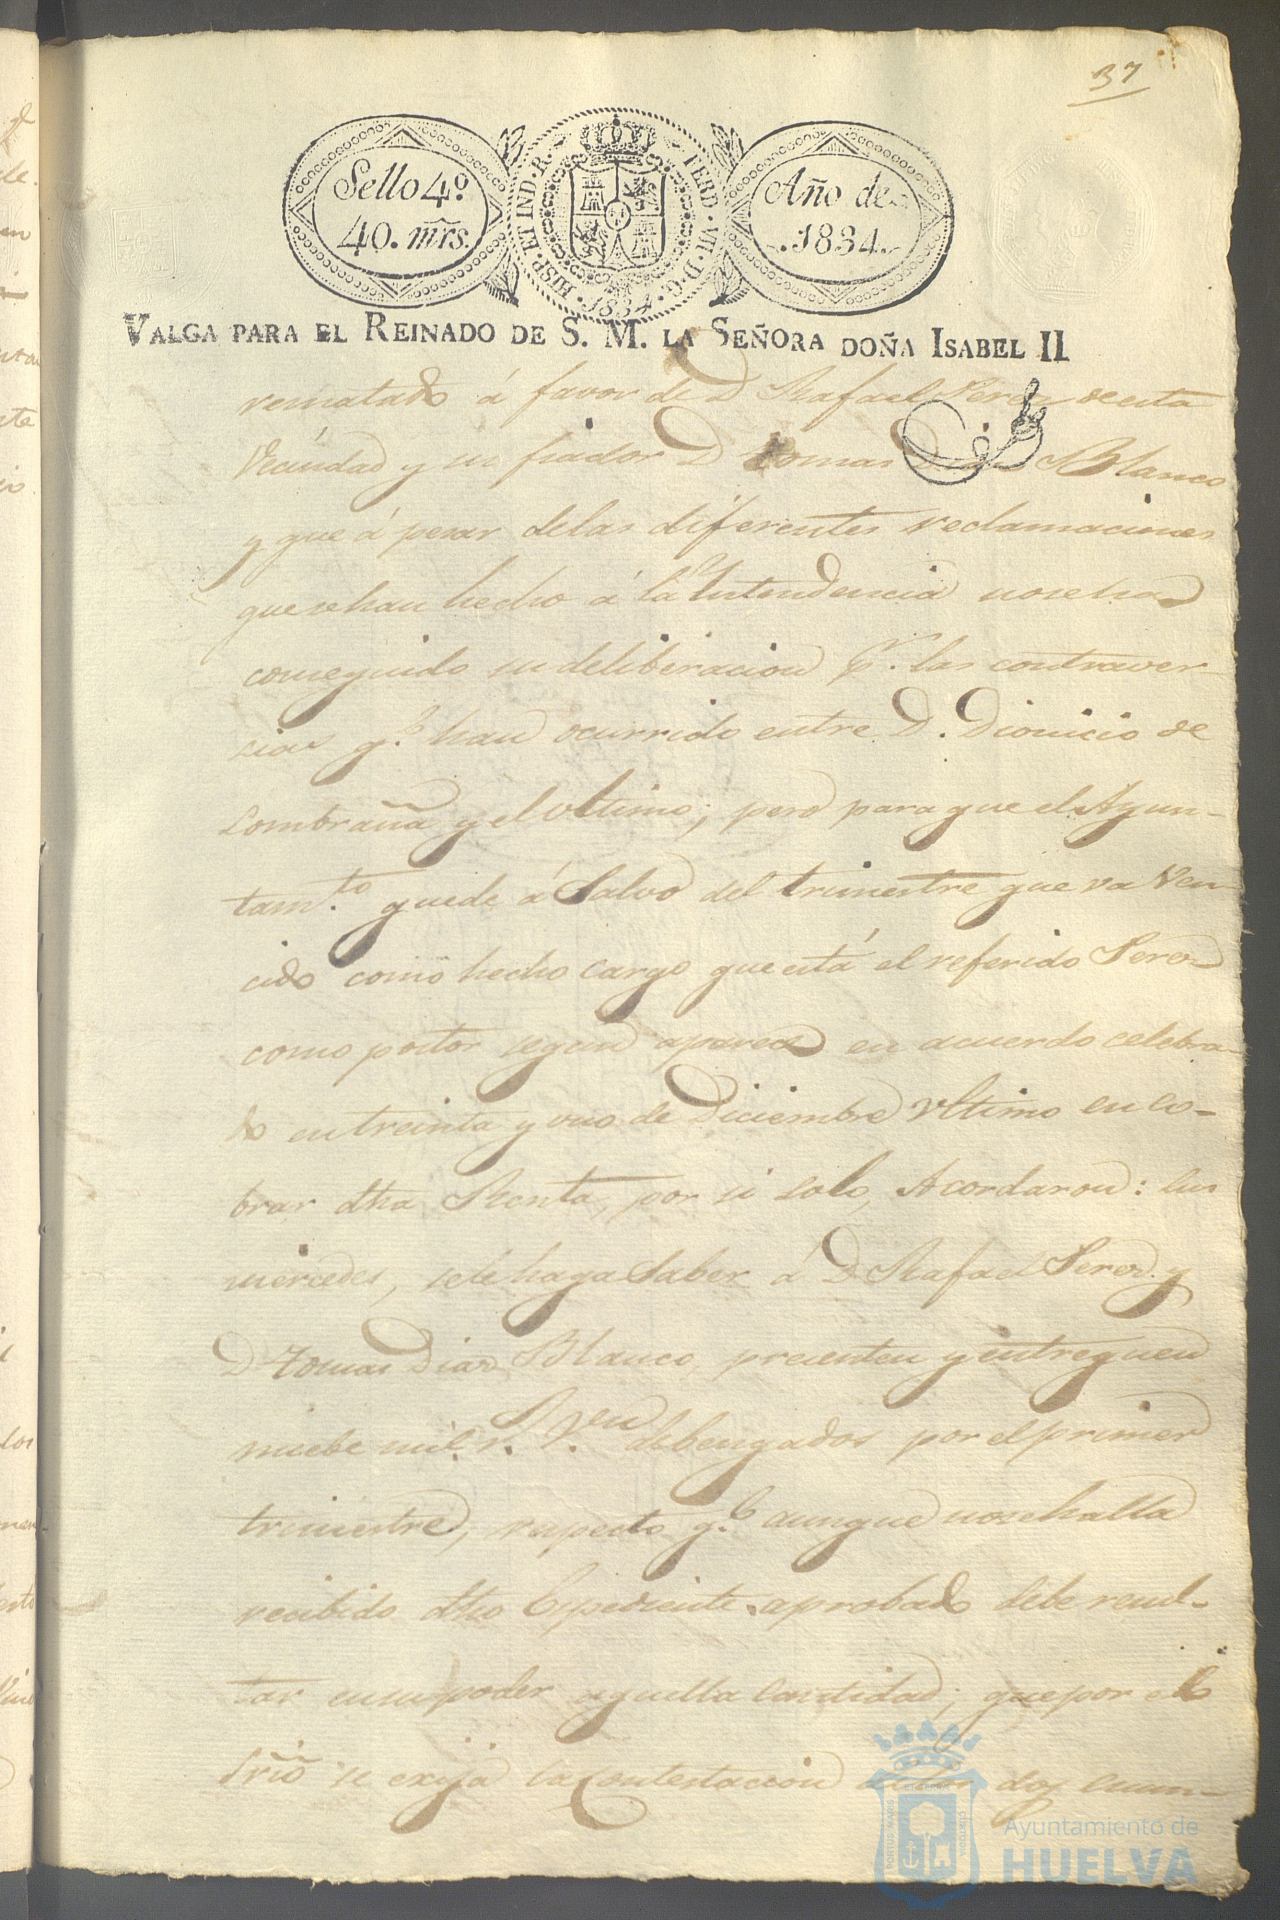 37
Sello 4º
40. mrs.
HISP. ET IND. R. FERD. VII. D. G. 1834.
Año de
1834.
VALGA PARA EL REINADO DE S. M. LA SEÑORA DOÑA ISABEL II
rematado á favor de D Rafael Perez de esta
Vecindad y su fiador D Tomas Diaz Blanco
y que á pesar delas diferentes reclamaciones
que sehan hecho á la Yntendencia nosehá
conseguido su deliberacion pr. las contraver-
cias qe. han ocurrido entre D. Dionicio de
Lombraña y el Ultimo; pero para que el Ayun-
tamto. quede á Salvo del trimestre que va Ven-
cido como hecho cargo que está el referido Perez
como postor segun aparece en acuerdo celebra-
do en treinta y uno de Diciembre Ultimo en co-
brar dha Renta, por si solo, Acordaron: sus
mercedes, sele haga Saber á D Rafael Perez y
D Tomas Diaz Blanco, presenten y entreguen
nuebe mil rs. Von debengados por el primer
trimestre, respecto qe. aunque nosehalla
recibido dho Espediente aprobado debe resul-
tar ensu poder aquella Cantidad; que por el
Srio se exija la Contestacion delos dos cuan-
Ayuntamiento de
HUELVA